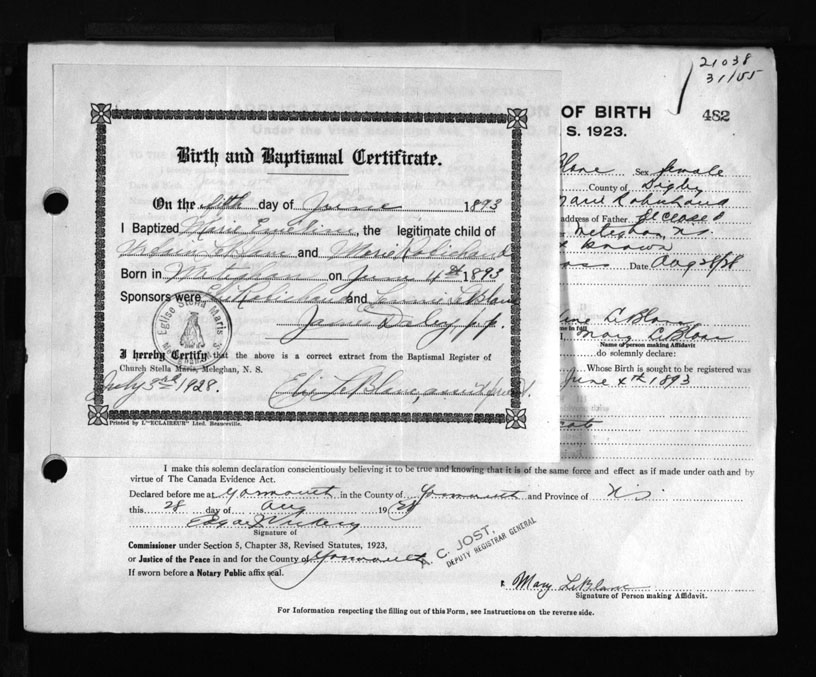 21038
31/55
482
OF BIRTH
S. 1923.
Birth and Baptismal Certificate.
On the fifth day of June 1893
I Baptized Marie Emeline, the legitimate child of
LeBlanc and Marie Robichaud
Born in Meteghan on June 4th 1893
Sponsors were Robichaud and LeBlanc
James Daley p.p.
Eglise Stella Maris
I hereby Certify that the above is a correct extract from the Baptismal Register of
Church Stella Maris, Meteghan, N. S.
July 3rd 1928. LeBlanc,
Printed by L'"ECLAIREUR" Lted. Beauceville.
Sex female
County of Digby
Robichaud
address of Father deceased
Meteghan, N.S.
known
Date Aug 28/28
Mary LeBlanc
Name of person making Affidavit
do solemnly declare:
Whose Birth is sought to be registered was
June 4th 1893
I make this solemn declaration conscientiously believing it to be true and knowing that it is of the same force and effect as if made under oath and by
virtue of The Canada Evidence Act.
Declared before me at Yarmouth in the County of Yarmouth and Province of N.S.
this 28 day of Aug 1928
Edgar
Signature of
Commissioner under Section 5, Chapter 38, Revised Statutes, 1923,
or Justice of the Peace in and for the County of Yarmouth
If sworn before a Notary Public affix seal.
A. C. JOST,
DEPUTY REGISTRAR GENERAL
Mary LeBlanc
Signature of Person making Affidavit.
For Information respecting the filling out of this Form, see Instructions on the reverse side.